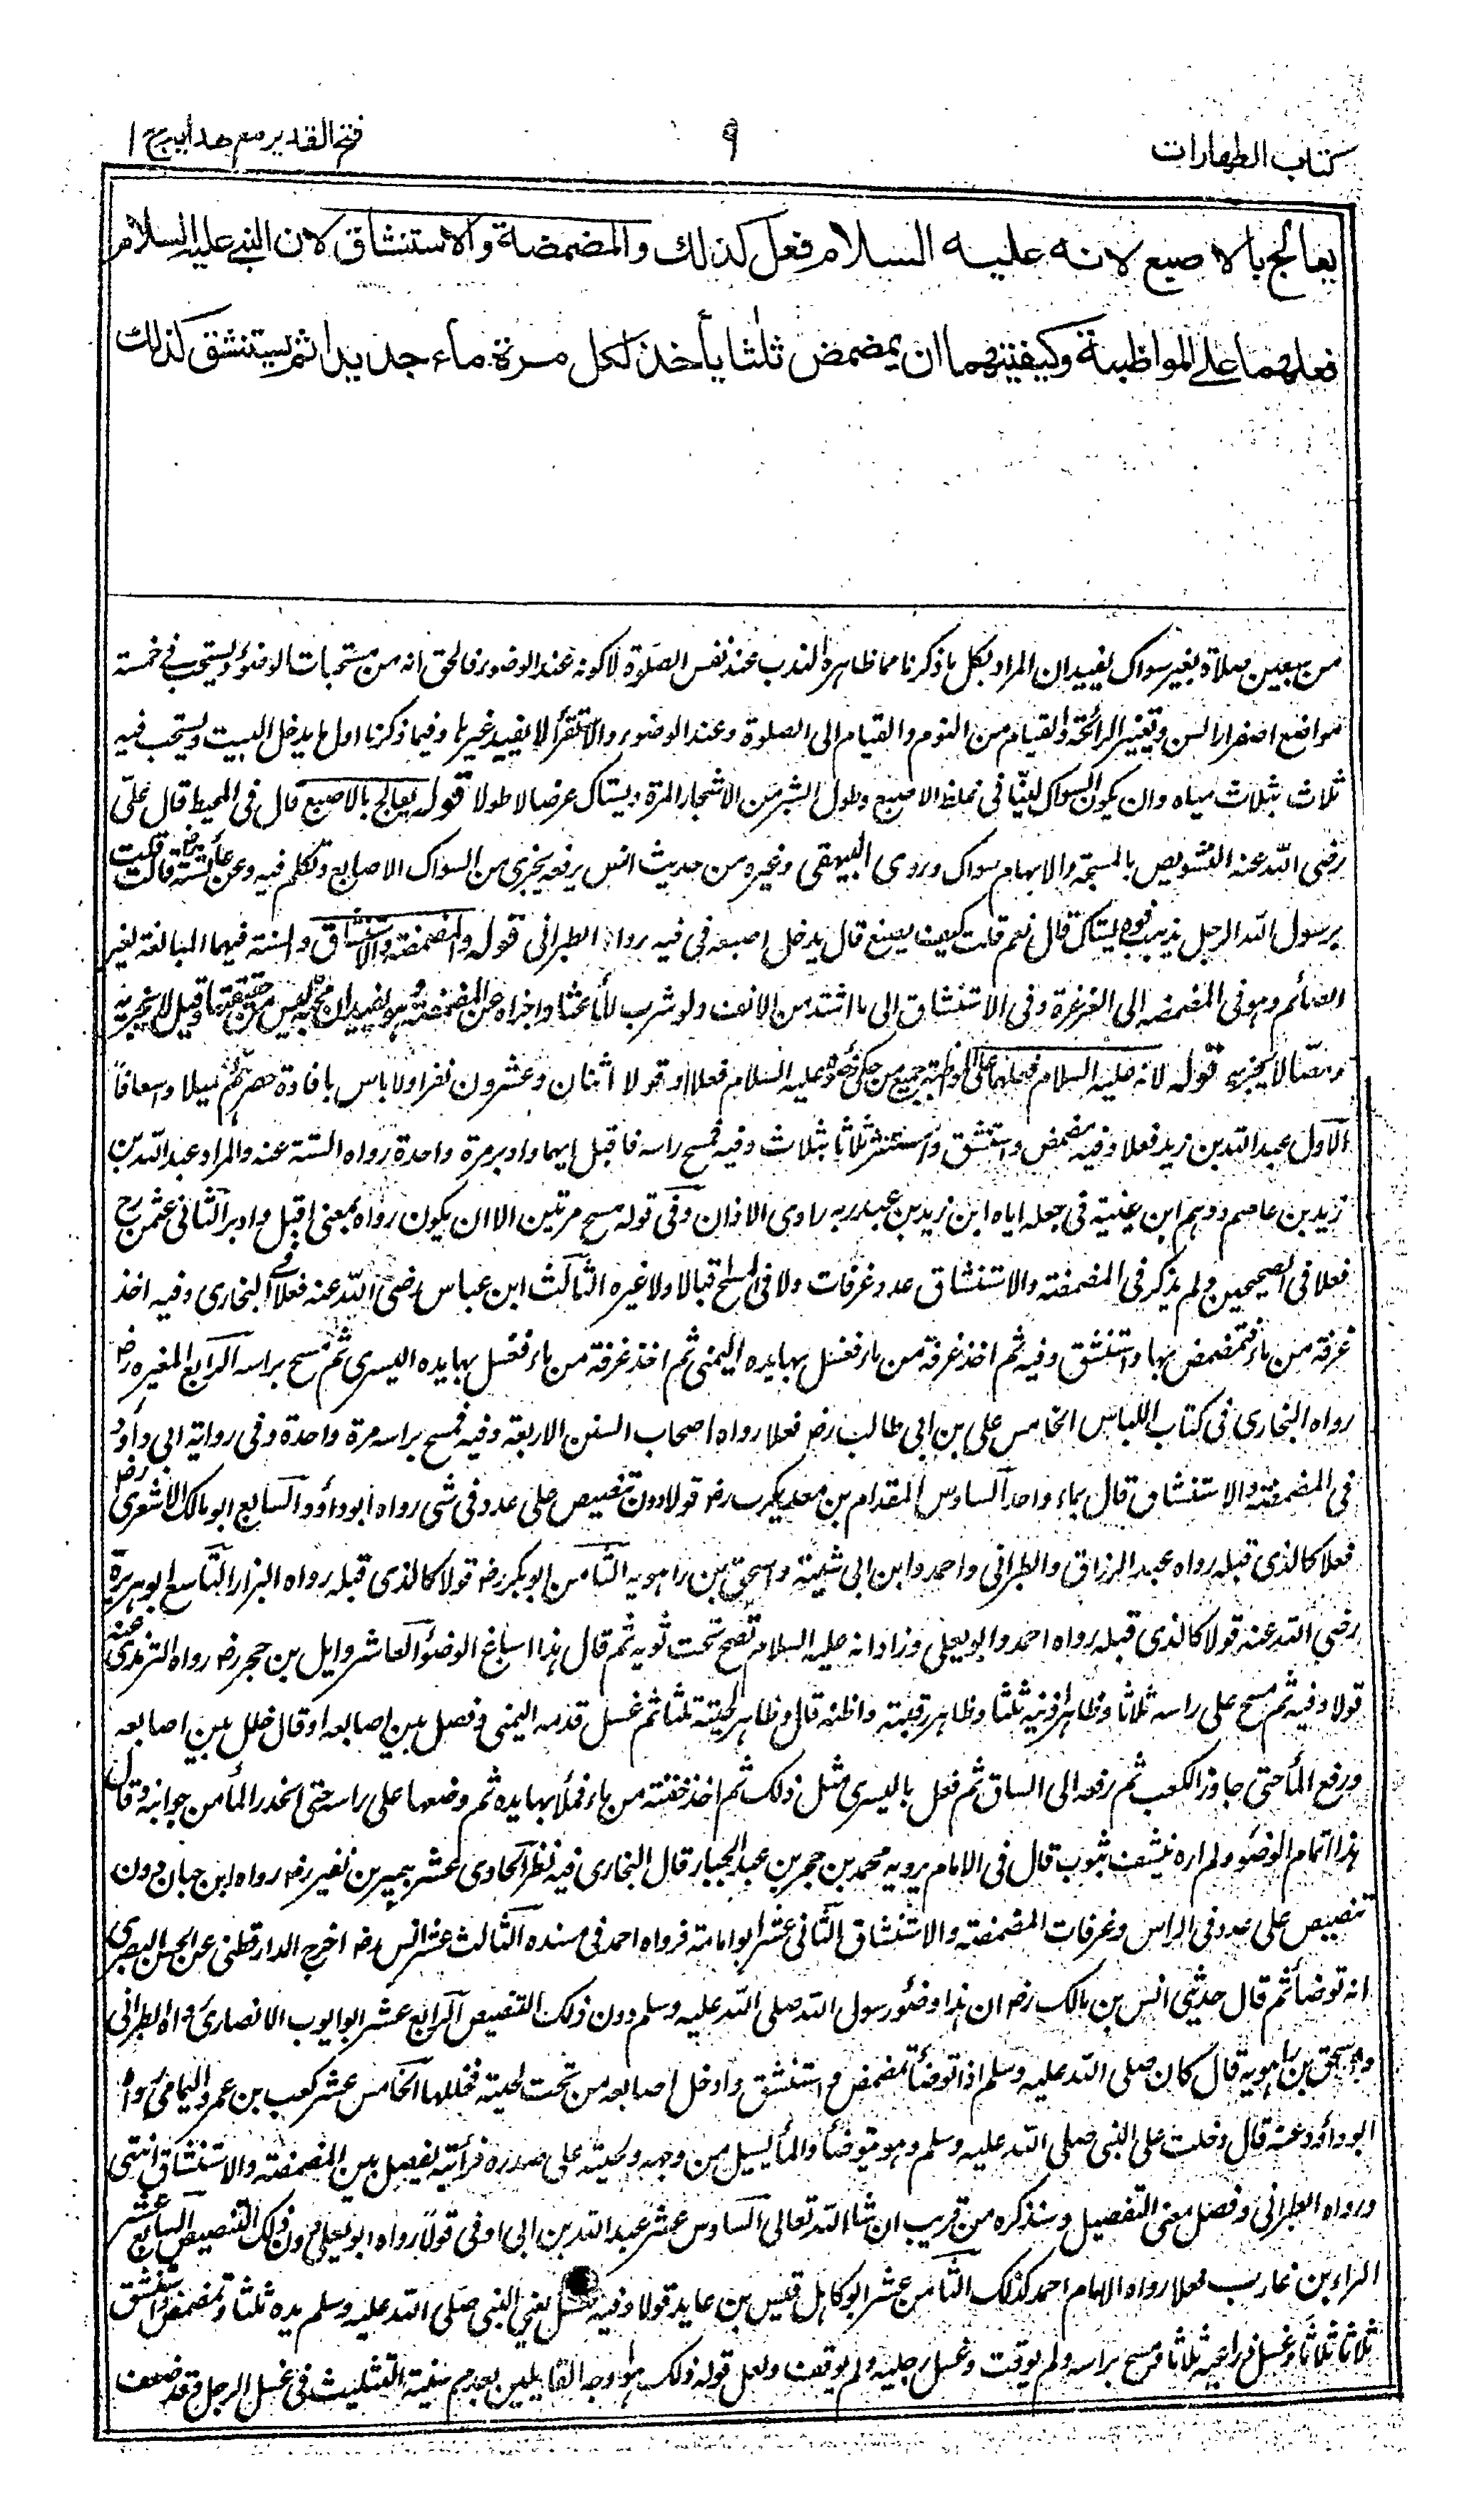 كتاب الطهارات
٩
فتح القدير مع هدايه ج ١
يعالج بالاصبع لانه عليه السلام فعل كذلك والمضمضة والاستنشاق لان النبي عليه السلام
فعلهما على المواظبة وكيفيتهما ان يمضمض ثلثا يأخذ لكل مرة ماء جديدا ثم يستنشق كذلك
من سبعين صلاة بغير سواك يفيد ان المراد بكل ما ذكرنا مما ظاهره الندب عند نفس الصلوة لا كونه عند الوضوء فالحق انه من مستحبات الوضوء ويستحب في خمسة
مواضع اصفرار السن وتغير الرائحة والقيام من النوم والقيام الى الصلوة وعند الوضوء والاستقراء لا يفيد غيرها وفيما ذكرنا اول ما يدخل البيت ويستحب فيه
ثلاث بثلاث مياه وان يكون السواك لينا في غلظ الاصبع وطول الشبر من الاشجار المرة ويستاك عرضا لا طولا قوله يعالج بالاصبع قال في المحيط قال علي
رضى الله عنه التشويص بالمسبحة والابهام سواك وروى البيهقى وغيره من حديث انس يرفعه يجزى من السواك الاصابع وتكلم فيه وعن عائشة رض قالت قلت
يرسول الله الرجل يذهب فوه يستاك قال نعم قلت كيف يصنع قال يدخل اصبعه في فيه رواه الطبرانى قوله والمضمضة والاستنشاق والسنة فيهما المبالغة لغير
الصائم وهو فى المضمضة الى الغرغرة وفى الاستنشاق الى ما اشتد من الانف ولو شرب الماء عبا اجزاه عن المضمضة وهو يفيد ان مجه ليس من حقيقتها وقيل لا يجزيه
ومصا لا يجزيه قوله لانه عليه السلام فعلهما على المواظبة جميع من حكى وضوءه عليه السلام فعلا او قولا اثنان وعشرون نفرا ولا باس بافادة حصرهم تكميلا واسعافا
الاول عبد الله بن زيد فعلا وفيه مضمض واستنشق واستنثر ثلاثا بثلاث وفيه فمسح راسه فاقبل بهما وادبر مرة واحدة رواه الستة عنه والمراد عبد الله بن
زيد بن عاصم ووهم ابن عيينة فى جعله اياه ابن زيد بن عبد ربه راوى الاذان وفى قوله مسح مرتين الا ان يكون رواه بمعنى اقبل وادبر الثانى عثمن رح
فعلا فى الصحيحين ولم يذكر فى المضمضة والاستنشاق عدد غرفات ولا فى المسح اقبالا ولا غيره الثالث ابن عباس رضى الله عنه فعلا فى البخارى وفيه اخذ
غرفة من ماء فتمضمض بها واستنشق وفيه ثم اخذ غرفة من ماء فغسل بها يده اليمنى ثم اخذ غرفة من ماء فغسل بها يده اليسرى ثم مسح براسه الرابع المغيره رض
رواه البخارى فى كتاب اللباس الخامس على بن ابى طالب رض فعلا رواه اصحاب السنن الاربعة وفيه فمسح براسه مرة واحدة وفى رواية ابى داود
فى المضمضة والاستنشاق قال بماء واحد السادس المقدام بن معديكرب رض قولا دون تنصيص على عدد فى شى رواه ابو داؤد السابع ابو مالك الاشعرى رض
فعلا كالذى قبله رواه عبد الرزاق والطبرانى واحمد وابن ابى شيبة واسحق بن راهويه الثامن ابو بكر رض قولا كالذى قبله رواه البزار التاسع ابو هريرة
رضى الله عنه قولا كالذى قبله رواه احمد وابو يعلى وزاد انه عليه السلام نضح تحت ثوبه ثم قال هذا اسباغ الوضوء العاشر وايل بن حجر رض رواه الترمذى عنه
قولا وفيه ثم مسح على راسه ثلاثا وظاهر اذنيه ثلثا وظاهر رقبته واظنه قال وظاهر لحيته ثلثا ثم غسل قدمه اليمنى وفصل بين اصابعه او قال خلل بين اصابعه
ورفع الماء حتى جاوز الكعب ثم رفعه الى الساق ثم فعل باليسرى مثل ذلك ثم اخذ حفنة من ماء فملأ بها يده ثم وضعها على راسه حتى انحدر الماء من جوانبه وقال
هذا اتمام الوضوء ولم اره ينشف بثوب قال فى الامام يرويه محمد بن حجر بن عبد الجبار قال البخارى فيه نظر الحادى عشر جبير بن نفير رض رواه ابن حبان دون
تنصيص على عدد فى الراس وغرفات المضمضة والاستنشاق الثانى عشر ابو امامة فرواه احمد فى مسنده الثالث عشر انس رض اخرج الدارقطنى عن الحسن البصرى
انه توضأ ثم قال حدثنى انس بن مالك رض ان هذا وضوء رسول الله صلى الله عليه وسلم دون ذلك التنصيص الرابع عشر ابو ايوب الانصارى رواه الطبرانى
واسحق بن راهويه قال كان صلى الله عليه وسلم اذا توضأ تمضمض واستنشق وادخل اصابعه من تحت لحيته فخللها الخامس عشر كعب بن عمرو اليامى رواه
ابو داؤد عنه قال دخلت على النبى صلى الله عليه وسلم وهو يتوضأ والماء يسيل من وجهه ولحيته على صدره فرأيته يفصل بين المضمضة والاستنشاق انتهى
ورواه الطبرانى وفصل معنى التفصيل وسنذكره من قريب ان شاء الله تعالى السادس عشر عبد الله بن ابى اوفى قولا رواه ابو يعلى دون ذلك التنصيص السابع عشر
البراء بن عازب فعلا رواه الامام احمد كذلك الثامن عشر ابو كاهل قيس بن عايد قولا وفيه غسل يعني النبى صلى الله عليه وسلم يده ثلثا وتمضمض واستنشق
ثلاثا ثلاثا وغسل ذراعيه ثلاثا ومسح براسه ولم يوقت وغسل رجليه ولم يوقت ولعل قوله ذلك هو اوجه القايلين بعدم سنية التثليث فى غسل الرجل وقد ضعف